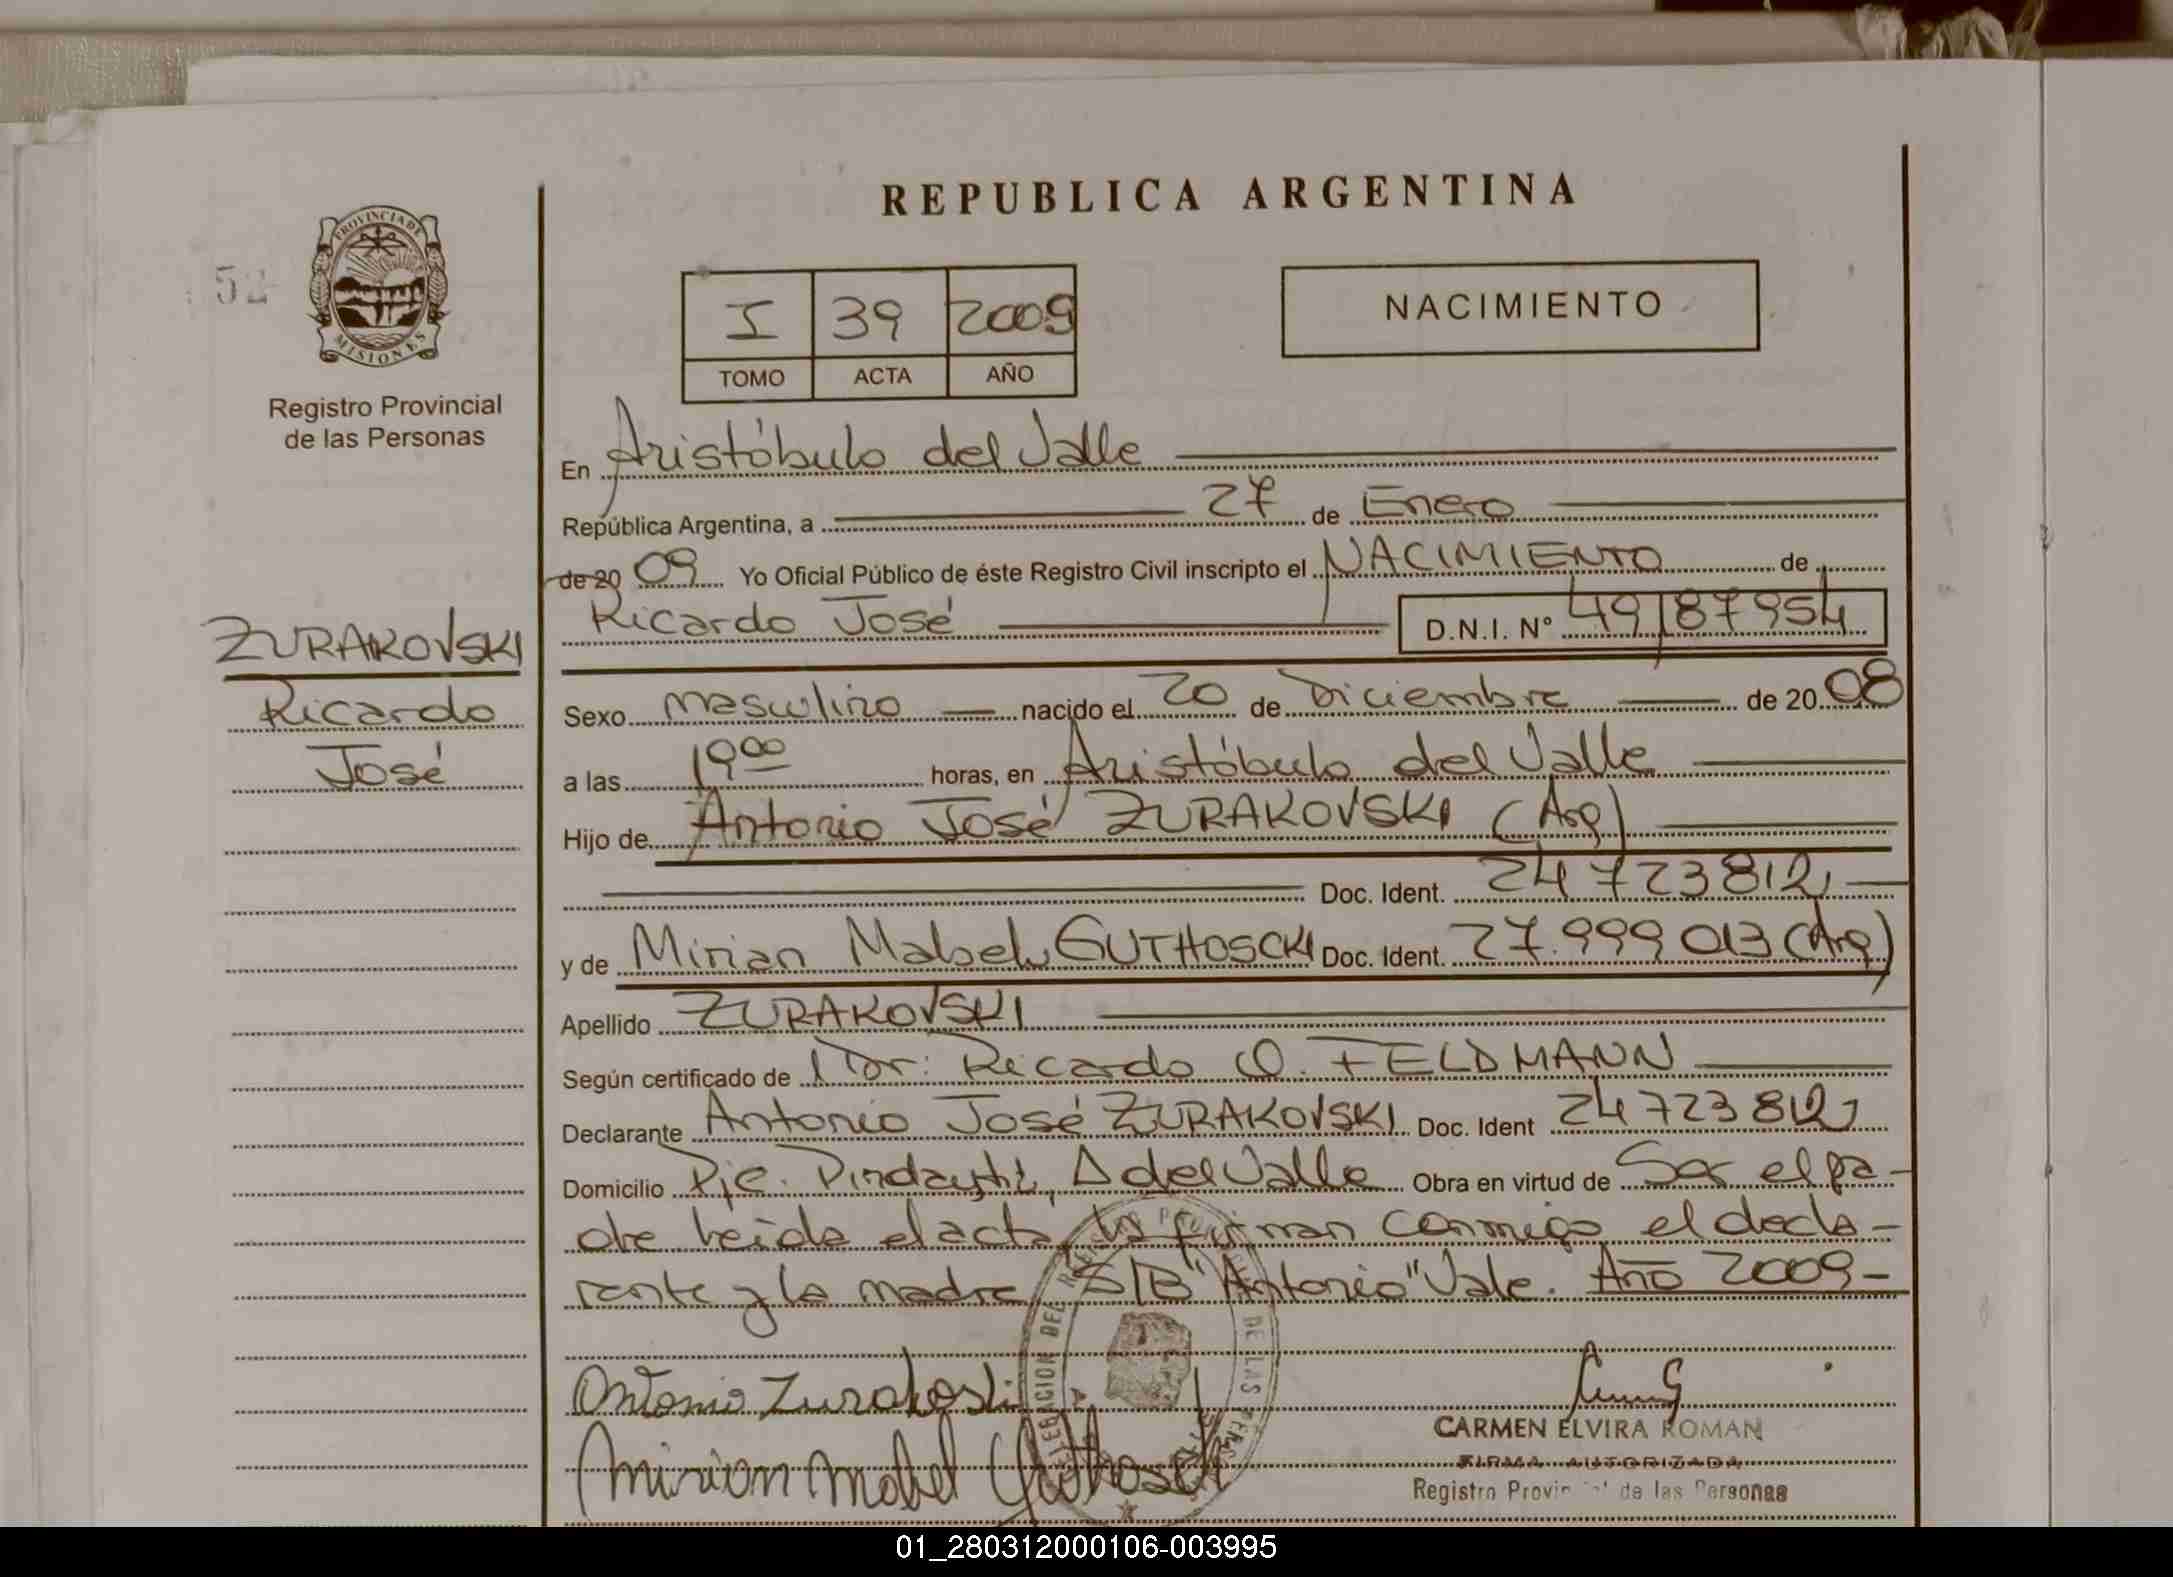 REPUBLICA ARGENTINA
PROVINCIA DE
MISIONES
52
Registro Provincial
de las Personas
I 39 2009
TOMO ACTA AÑO
NACIMIENTO
En Aristóbulo del Valle
República Argentina, a 27 de Enero
de 20 09 Yo Oficial Público de éste Registro Civil inscripto el NACIMIENTO de
Ricardo José D.N.I. Nº 49187954
ZURAKOVSKI
Ricardo
José
Sexo masculino nacido el 20 de Diciembre de 20 08
a las 19 00 horas, en Aristóbulo del Valle
Hijo de Antonio José ZURAKOVSKI (Arg)
Doc. Ident. 24723812
y de Mirian Mabel GUTHOSCKI Doc. Ident. 27.999 013 (Arg)
Apellido ZURAKOVSKI
Según certificado de Dr: Ricardo O. FELDMANN
Declarante Antonio José ZURAKOVSKI Doc. Ident 24723812
Domicilio Pje. A del Valle Obra en virtud de Ser el pa-
dre leída el acta, la firman conmigo el decla-
rante y la madre S/B "Antonio" Vale. Año 2009-
Antonio Zurakoski
Mirian Mabel
CARMEN ELVIRA ROMAN
FIRMA AUTORIZADA
Registro Provincial de las Personas
01_280312000106-003995